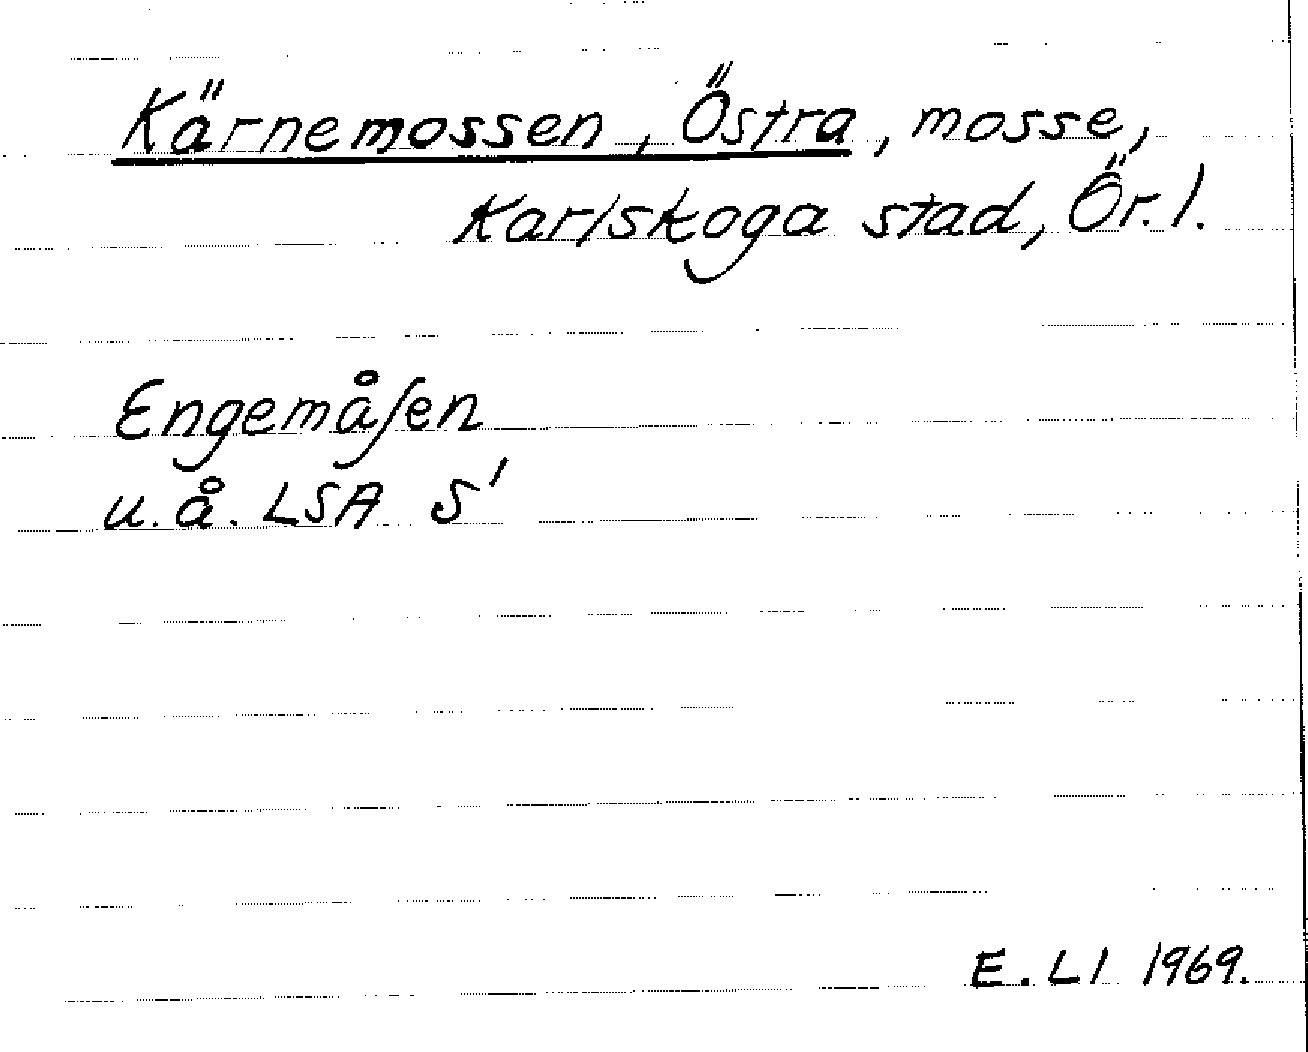 Kärnemossen, Östra, mosse,
Karlskoga stad, Ör. l.
Engemåſen
u. å. LSA S'
E. Ll 1969.